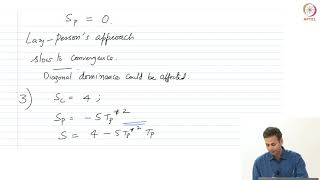 NPTEL
Sp = 0.
Lazy-person's approach
slow to convergence.
Diagonal dominance could be affected.
3) Sc = 4 ;
Sp = -5 Tp*2
S = 4 - 5 Tp*2 Tp